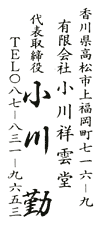 香川県高松市上福岡町七一六－九
有限会社 小川祥雲堂
代表取締役 小川 勤
TEL〇八七－八三一－九六五三